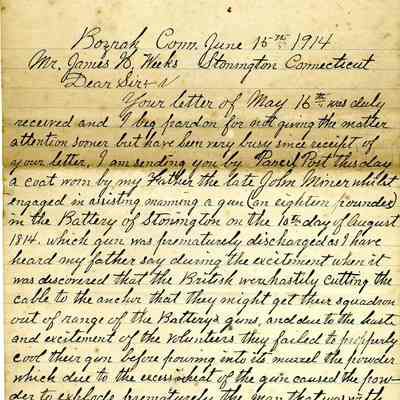 Bozrah Conn. June 15th 1914
Mr. James H. Weeks Stonington Connecticut
Dear Sir
Your letter of May 16th was duly
received and I beg pardon for not giving the matter
attention sooner but have been very busy since receipt of
your letter. I am sending you by Parcel Post this day
a coat worn by my Father the late John Miner whilst
engaged in assisting manning a gun (an eighteen pounder)
in the Battery of Stonington on the 10th day of August
1814. which gun was prematurely discharged as I have
heard my father say during the excitement when it
was discovered that the British were hastily cutting the
cable to the anchor that they might get their squadron
out of range of the Battery's guns, and due to the haste
and excitement of the volunteers they failed to properly
cool their gun before pouring into its muzzel the powder
which due to the excess heat of the gun caused the pow-
der to explode prematurely the man that was with